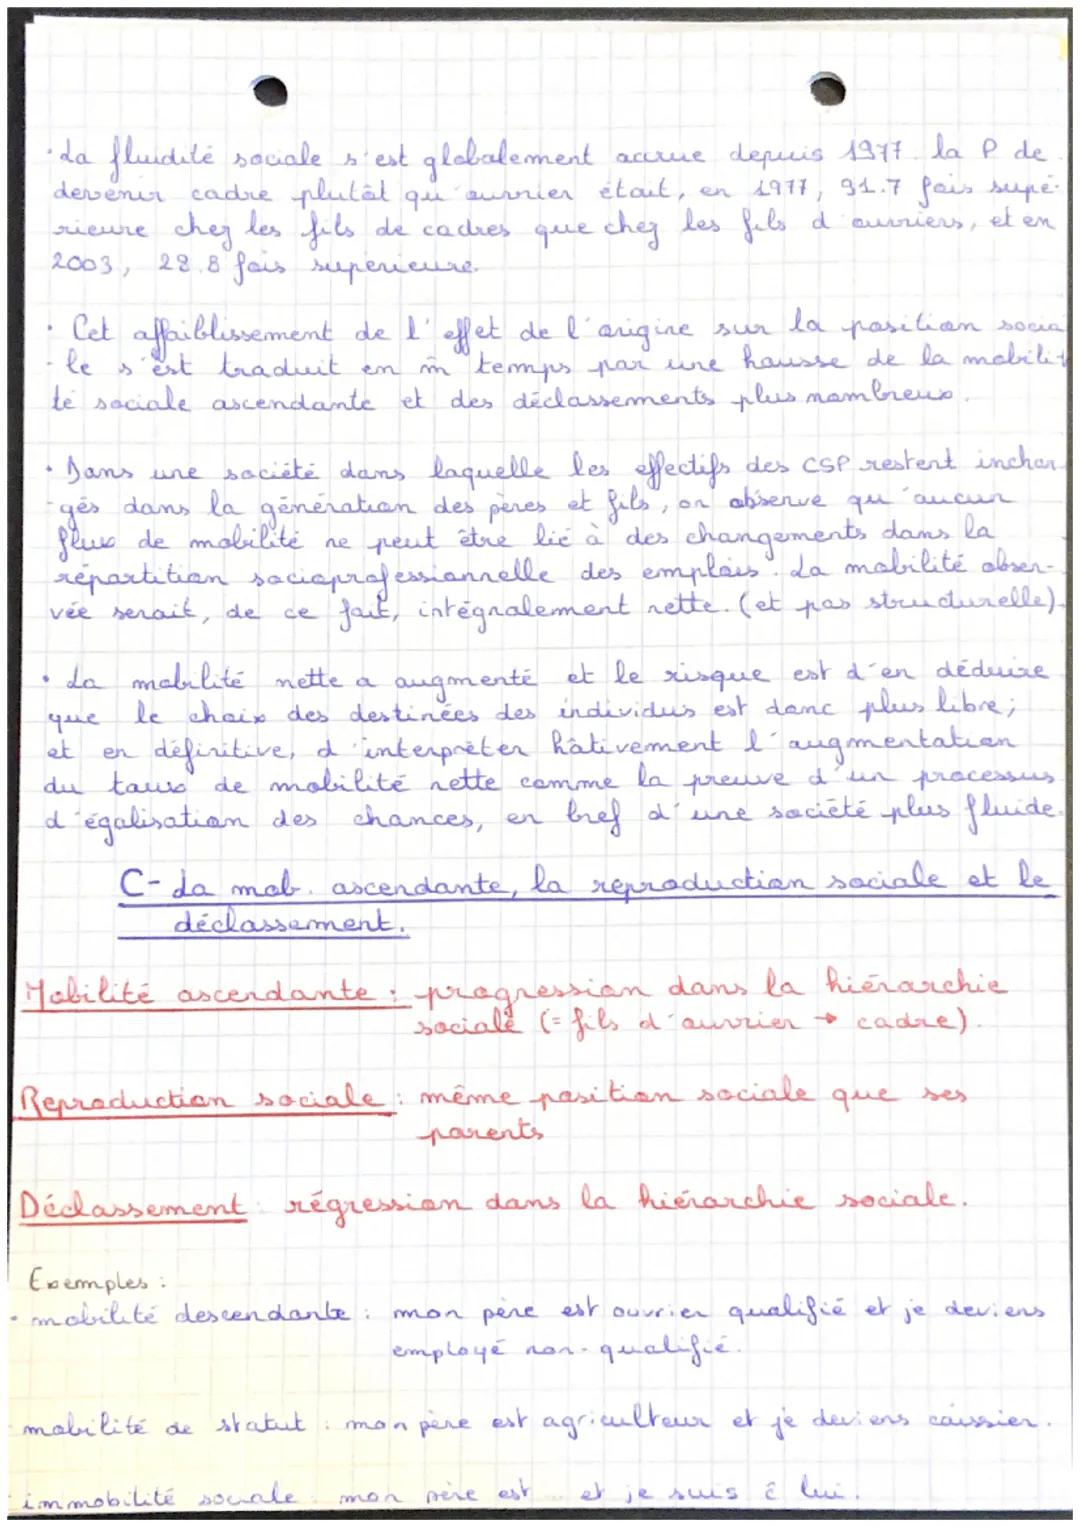 · La fluidité sociale s'est globalement accrue depuis 1977. la P de
devenir cadre plutôt qu'ouvrier était, en 1977, 91.7 fois supé-
rieure chez les fils de cadres que chez les fils d'ouvriers, et en
2003, 28.8 fois supérieure.
· Cet affaiblissement de l'effet de l'origine sur la position socia
-le s'est traduit en m̂ temps par une hausse de la mobilit
té sociale ascendante et des déclassements plus nombreux.
· Dans une société dans laquelle les effectifs des CSP restent inchan-
-gés dans la génération des pères et fils, on observe qu'aucun
flux de mobilité ne peut être lié à des changements dans la
répartition socioprofessionnelle des emplois. La mobilité obser-
vée serait, de ce fait, intégralement nette. (et pas structurelle).
· La mobilité nette a augmenté et le risque est d'en déduire
que le choix des destinées des individus est donc plus libre;
et en définitive, d'interpréter hâtivement l'augmentation
du taux de mobilité nette comme la preuve d'un processus
d'égalisation des chances, en bref d'une société plus fluide.
C- La mob. ascendante, la reproduction sociale et le
déclassement.
Mobilité ascendante : progression dans la hiérarchie
sociale (= fils d'ouvrier → cadre).
Reproduction sociale : même position sociale que ses
parents
Déclassement : régression dans la hiérarchie sociale.
Exemples :
· mobilité descendante : mon père est ouvrier qualifié et je deviens
employé non-qualifié.
mobilité de statut : mon père est agriculteur et je deviens caissier.
immobilité sociale : mon père est ... et je suis ĉ lui.